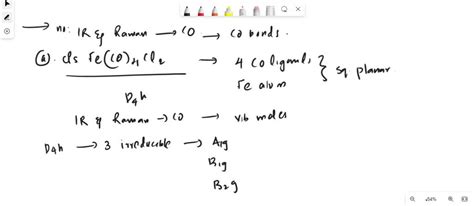 → no. IR & Raman → CO → CO bonds.
(a). cis Fe(CO)4 Cl2 → 4 CO ligands } sq planar
Fe atom
D4h
IR & Raman → CO → vib modes
D4h → 3 irreducible → A1g
B1g
B2g